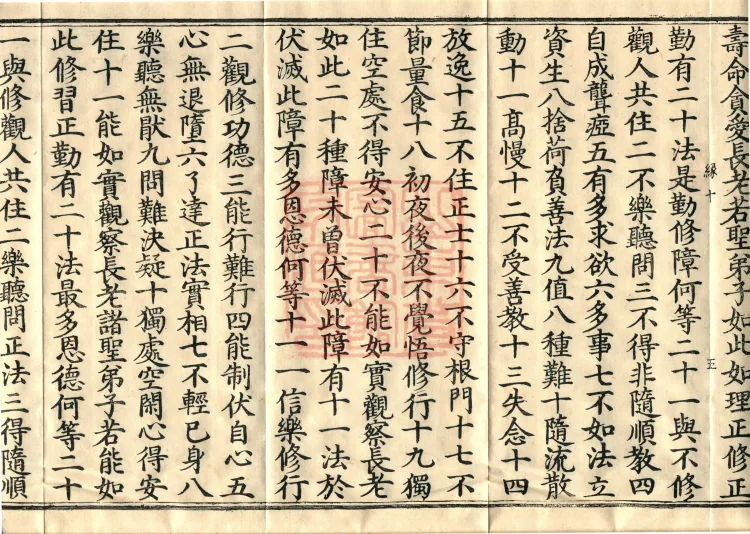 壽命貪愛長老若聖弟子如此如理正修正
緣十
五
勤有二十法是勤修障何等二十一與不修
觀人共住二不樂聽問三不得非隨順教四
自成聾瘂五有多求欲六多事七不如法立
資生八捨荷負善法九值八種難十隨流散
動十一高慢十二不受善教十三失念十四
放逸十五不住正士十六不守根門十七不
節量食十八初夜後夜不覺悟修行十九獨
住空處不得安心二十不能如實觀察長老
如此二十種障未曾伏滅此障有十一法於
伏滅此障有多恩德何等十一一信樂修行
二觀修功德三能行難行四能制伏自心五
心無退墮六了達正法實相七不輕已身八
樂聽無猒九問難決疑十獨處空閑心得安
住十一能如實觀察長老諸聖弟子若能如
此修習正勤有二十法最多恩德何等二十
一與修觀人共住二樂聽問正法三得隨順